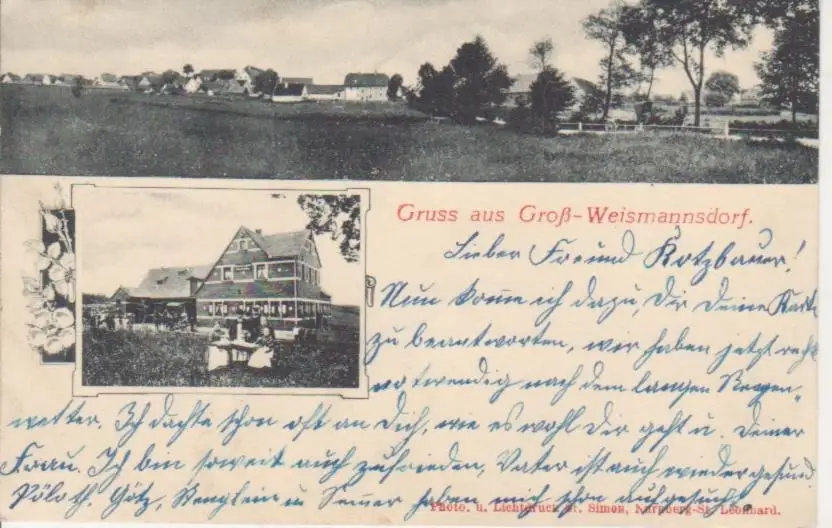 Gruss aus Groß-Weismannsdorf.
Lieber Freund Kotzbauer!
Nun komme ich dazu, Dir Deine Karte
zu beantworten, wir haben jetzt recht
notwendig nach dem langen Regen-
wetter. Ich dachte schon oft an Dich, wie es wohl Dir geht u. Deiner
Frau. Ich bin soweit auch zufrieden, Vater ist auch wieder gesund
Götz, u haben mich schon aufgesucht
Photo. u. Lichtdruck St. Simon, Nürnberg-St. Leonhard.